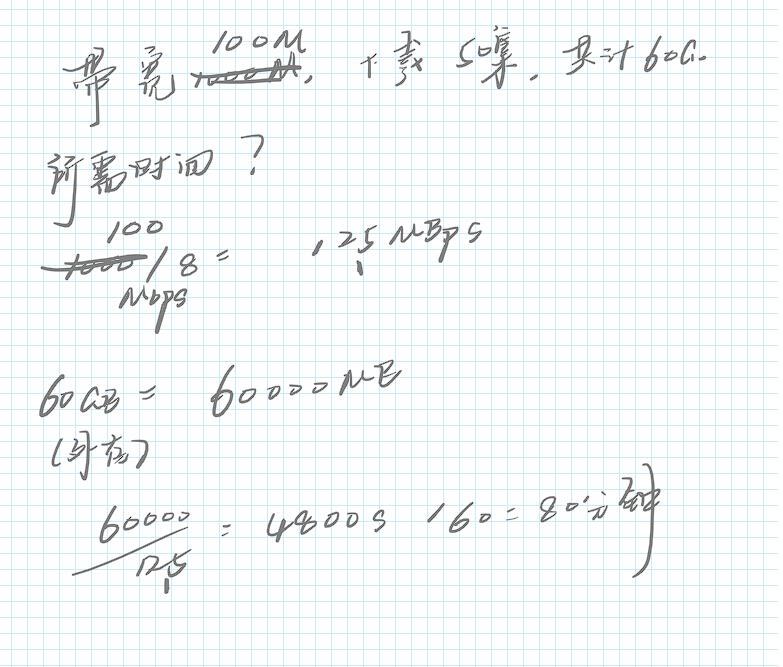 带宽 100M 1000M, 下载 50集, 共计 60G.
所需时间?
100
1000/8 = 125 MBps
Mbps
60GB = 60000MB
(外存)
60000
/125 = 4800s /60 = 80分钟